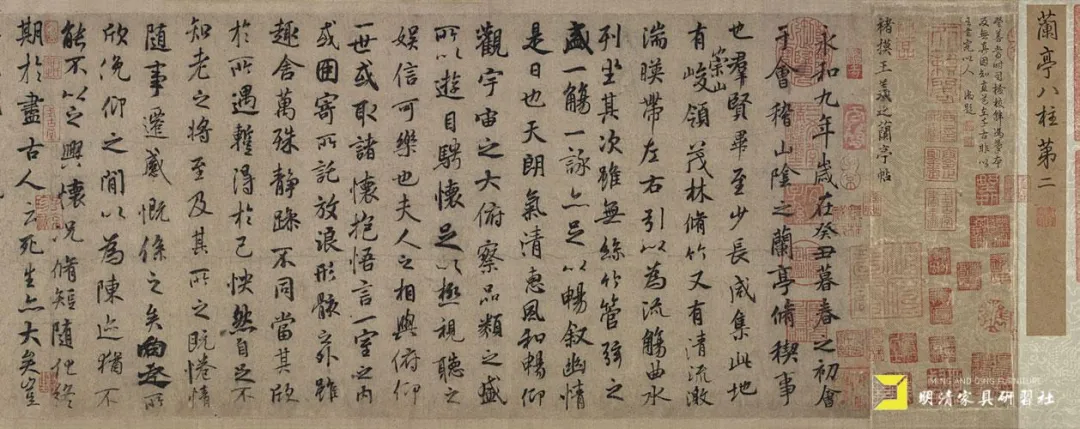 蘭亭八柱第二
褚摸王羲之蘭亭帖
永和九年歲在癸丑暮春之初會
于會稽山陰之蘭亭脩稧事
也羣賢畢至少長咸集此地
有崇山峻領茂林脩竹又有清流激
湍暎帶左右引以為流觴曲水
列坐其次雖無絲竹管弦之
盛一觴一詠亦足以暢叙幽情
是日也天朗氣清惠風和暢仰
觀宇宙之大俯察品類之盛
所以遊目騁懷足以極視聽之
娛信可樂也夫人之相與俯仰
一世或取諸懷抱悟言一室之內
或因寄所託放浪形骸之外雖
趣舍萬殊靜躁不同當其欣
於所遇暫得於己怏然自足不
知老之將至及其所之既惓情
隨事遷感慨係之矣向之所
欣俛仰之間以為陳迹猶不
能不以之興懷況脩短隨化終
期於盡古人云死生亦大矣豈
MING AND QING FURNITURE
明清家具研習社